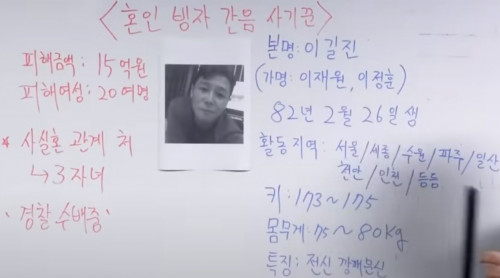 <혼인 빙자 간음 사기꾼>
피해금액: 15억원
피해여성: 20여명
* 사실혼 관계 처
↳ 3자녀
· 경찰 수배중
본명: 이길진
(가명: 이재원, 이정훈)
82년 2월 26일 생
활동지역: 서울/세종/수원/파주/일산
천안/인천/등등
키: 173~175
몸무게: 75~80kg
특징: 전신 깡패문신